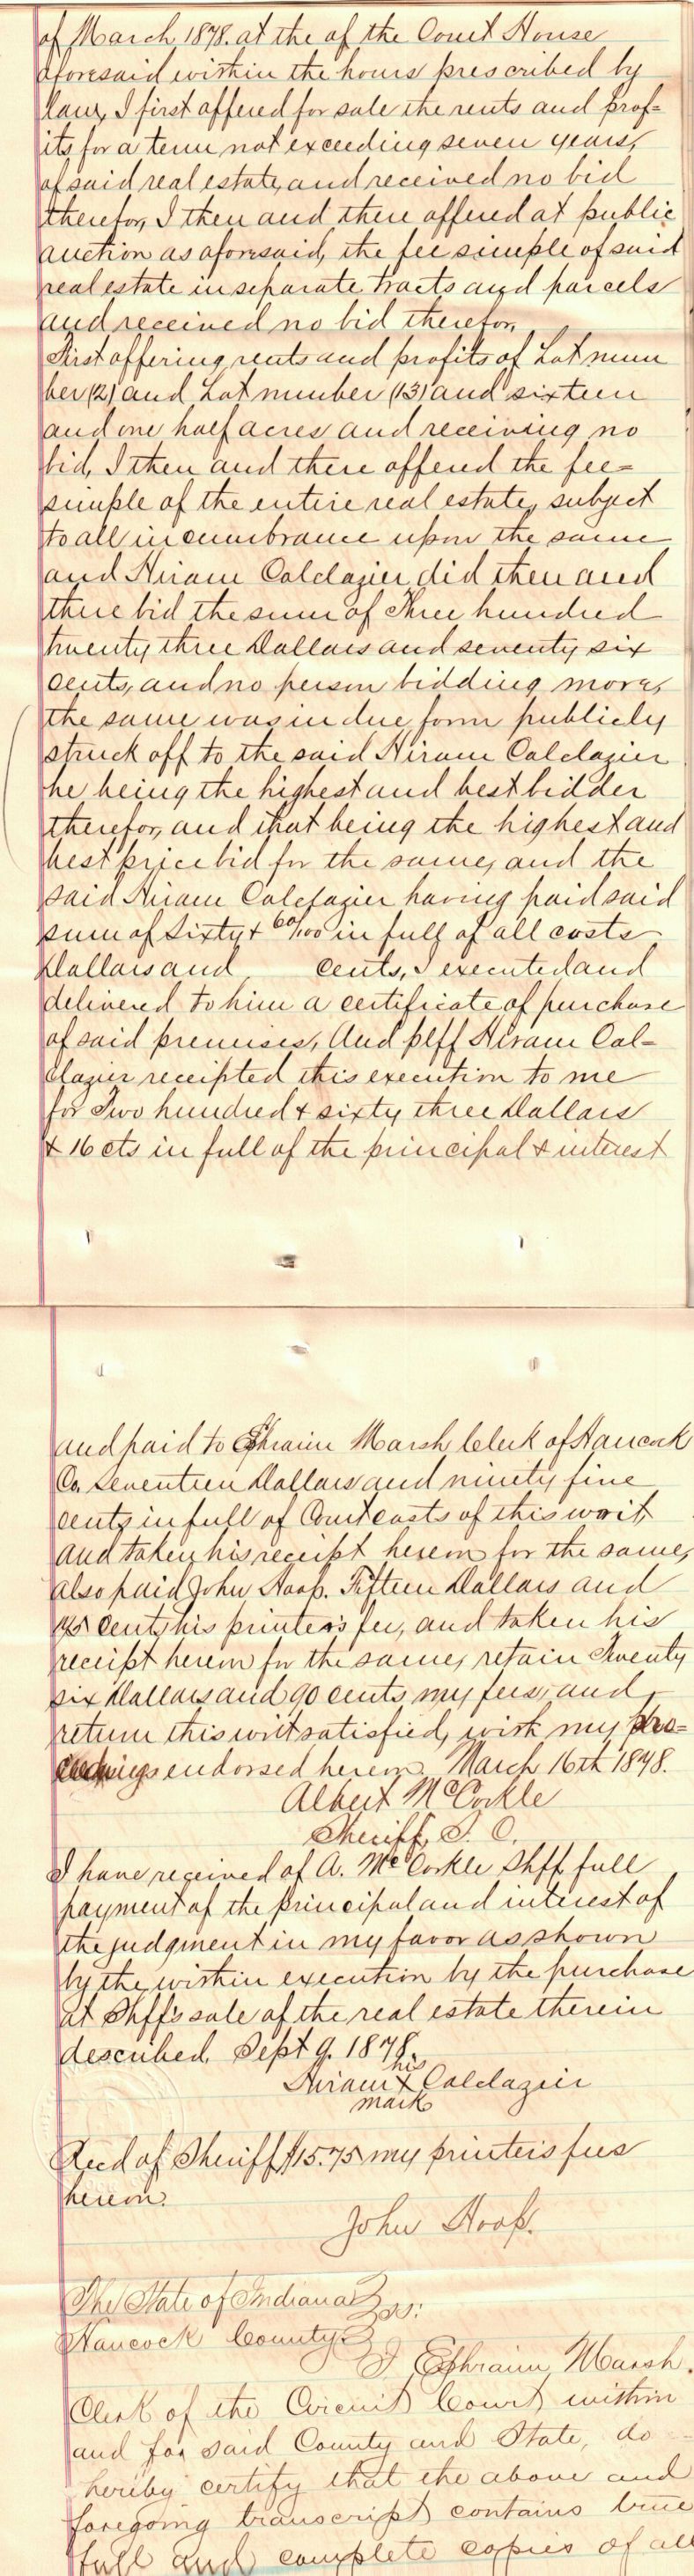 of March 1878. at the of the Court House
aforesaid within the hours prescribed by
law, I first offered for sale the rents and prof=
its for a term not exceeding seven years,
of said real estate, and received no bid
therefor, I then and there offered at public
auction as aforesaid, the fee simple of said
real estate in separate tracts and parcels
and received no bid therefor,
First offering rents and profits of Lot num
ber (2) and Lot number (13) and sixteen
and one half acres and receiving no
bid, I then and there offered the fee=
simple of the entire real estate, subject
to all incumbrance upon the same
and Hiram Calclazier did then and
there bid the sum of Three hundred
twenty three Dollars and seventy six
cents, and no person bidding more,
the same was in due form publicly
struck off to the said Hiram Calclazier
he being the highest and best bidder
therefor, and that being the highest and
best price bid for the same, and the
said Hiram Calclazier having paid said
sum of Sixty + 60/100 in full of all costs
Dollars and cents, I executed and
delivered to him a certificate of purchase
of said premises, And plff Hiram Cal=
clazier receipted this execution to me
for Two hundred + sixty three Dollars
+ 16 cts in full of the principal + interest
and paid to Ephraim Marsh Clerk of Hancock
Co. Seventeen Dollars and ninety five
cents in full of Court costs of this writ
and taken his receipt hereon for the same,
also paid John Hoop. Fifteen Dollars and
75 cents his printer's fee, and taken his
receipt hereon for the same, retain Twenty
six Dollars and 90 cents, my fees, and
return this writ satisfied, with my pro=
ceedings endorsed hereon. March 16th 1878.
Albert McCorkle
Sheriff, S. C.
I have received of A. McCorkle Shff full
payment of the principal and interest of
the judgment in my favor as shown
by the within execution by the purchase
at Shff's sale of the real estate therein
described. Sept 9. 1878.
his
Hiram X Calclazier
mark
Recd of Sheriff $15.75 my printers fees
hereon.
John Hoop.
The State of Indiana } ss:
Hancock County }
I Ephraim Marsh.
Clerk of the Circuit Court within
and for said County and State, do
hereby certify that the above and
foregoing transcript contains true
full and complete copies of all